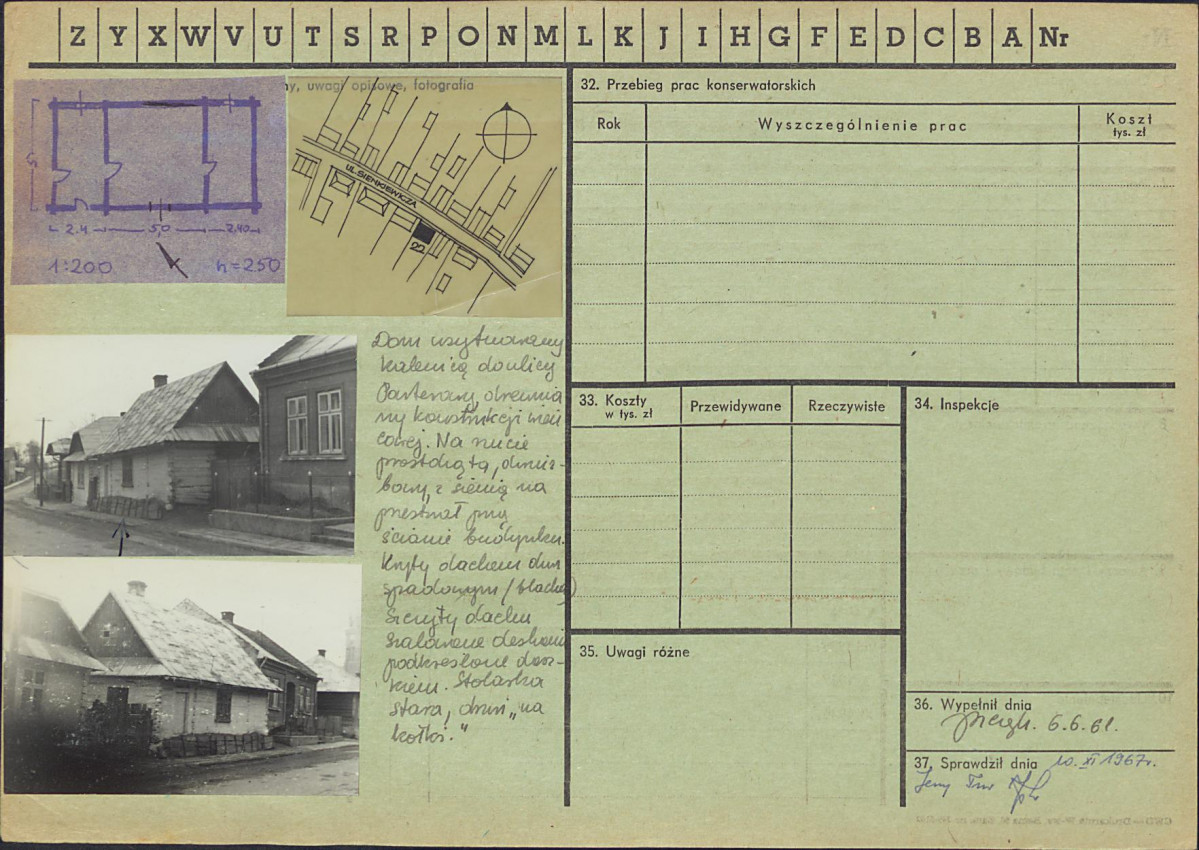 Z Y X W V U T S R P O N M L K J I H G F E D C B A Nr
ny, uwagi opisowe, fotografia
2.4 5,0 2,40
1:200 h=250
UL. SIENKIEWICZA
22
Dom usytuowany
kalenicą do ulicy
Parterowy, drewnia
ny konstrukcji wień
cowej. Na rzucie
prostokąta, dwuiz-
bowy, z sienią na
przestrzał przy
ścianie budynku.
Kryty dachem dwu
spadowym (blachą)
Szczyty dachu
szalowane deskami
podkreślone dasz-
kiem. Stolarka
stara, drzwi „na
kołki."
32. Przebieg prac konserwatorskich
Rok
Wyszczególnienie prac
Koszt
tys. zł
33. Koszty
w tys. zł
Przewidywane
Rzeczywiste
34. Inspekcje
35. Uwagi różne
36. Wypełnił dnia
6.6.61.
37. Sprawdził dnia 10.XI 1967r.